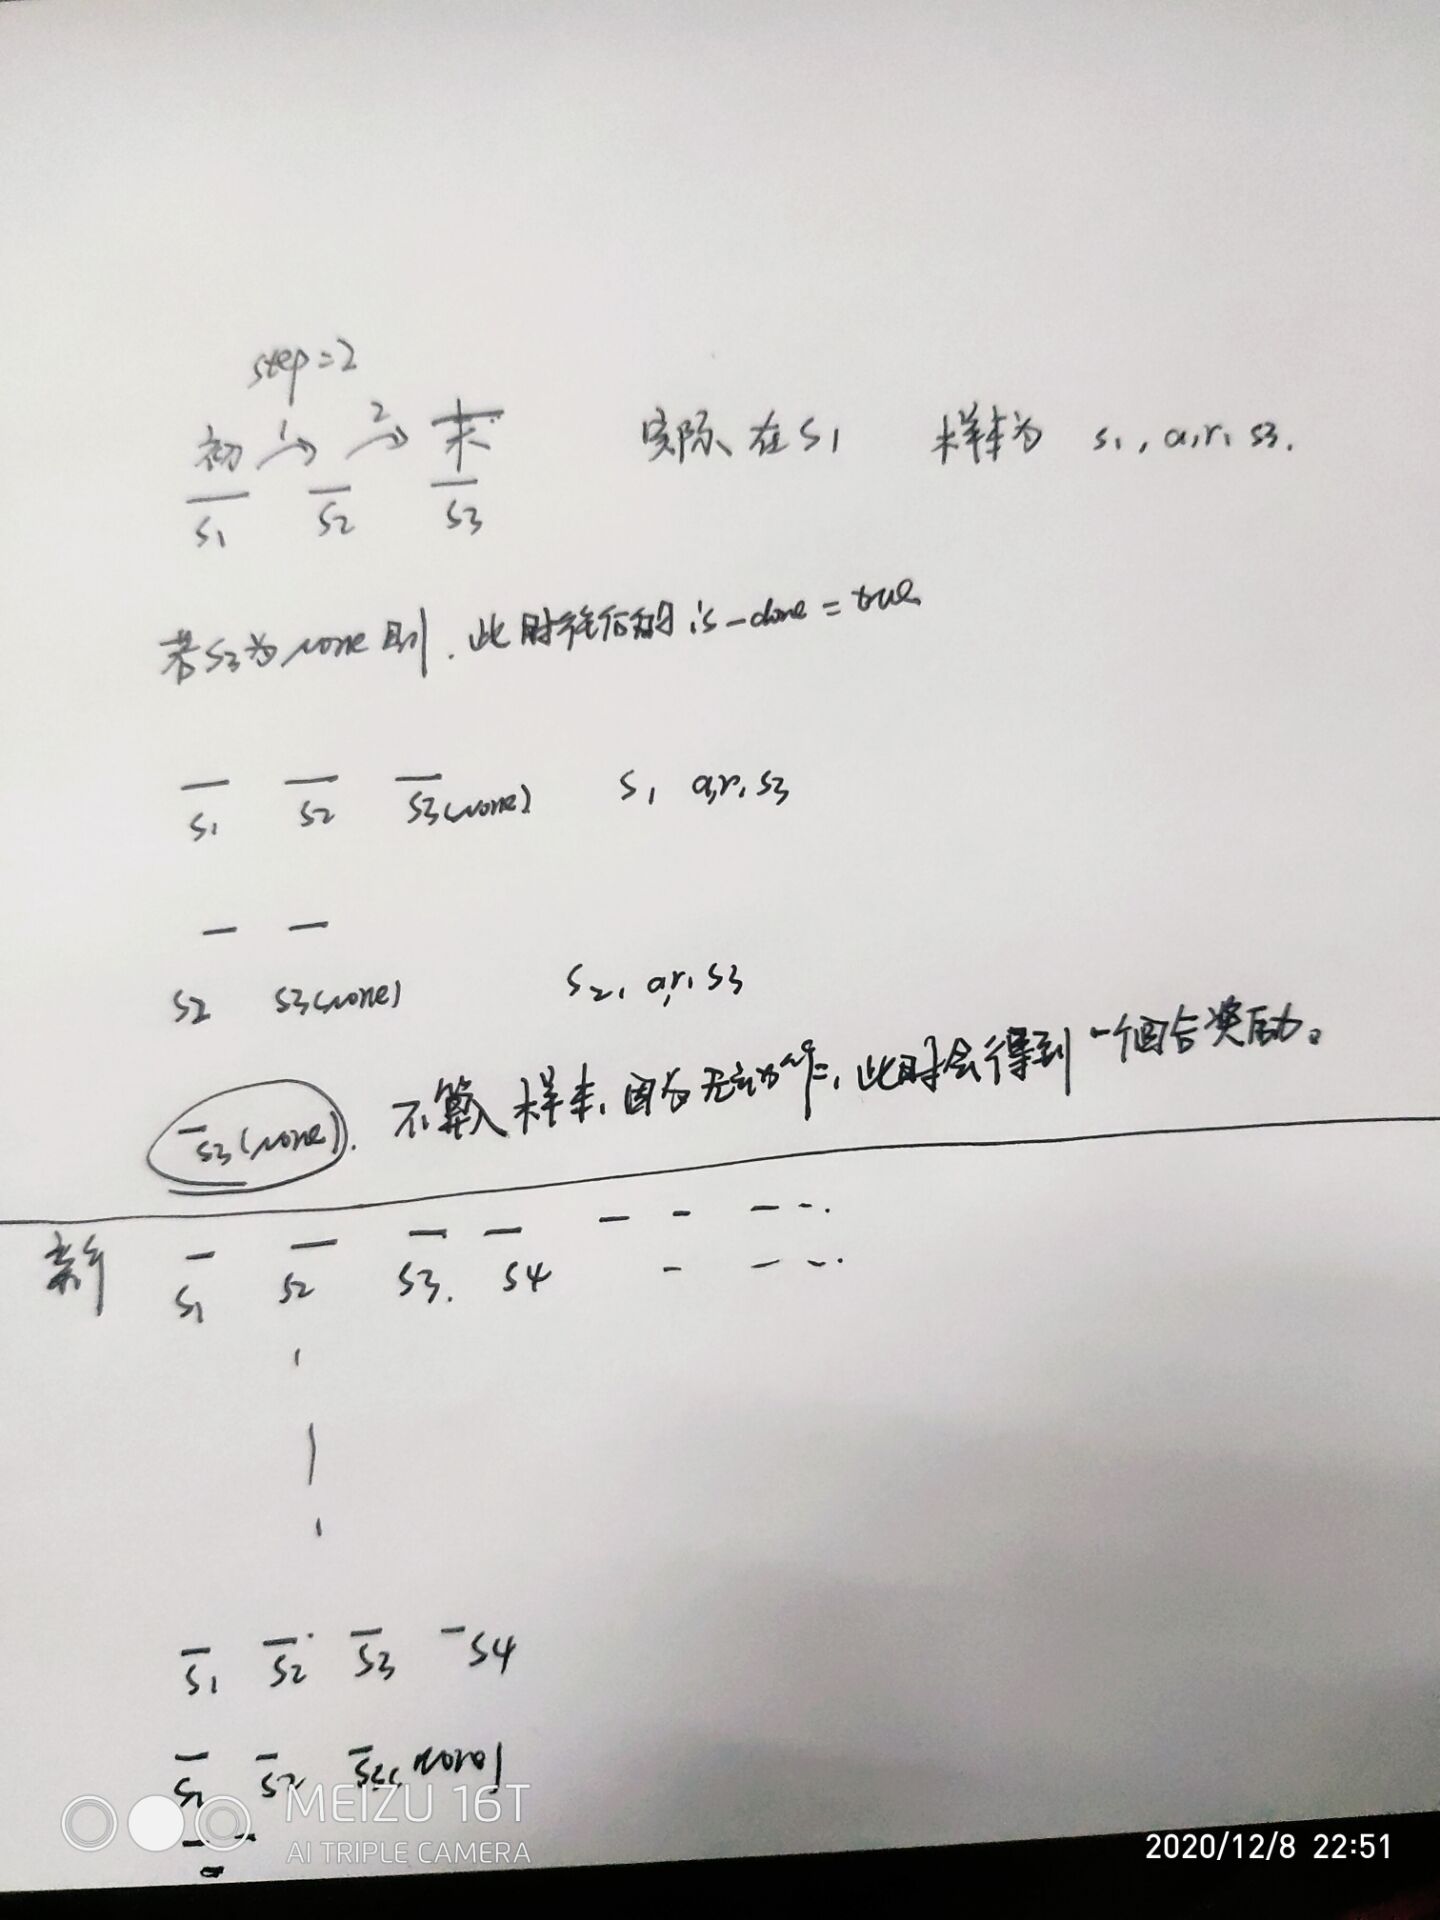 step=2
初 1 2 末 实际在S1 样本为 S1, a, r, S3.
S1 S2 S3
若S3为none则.此时往后的is-done=true
S1 S2 S3(none) S1 a,r,S3
S2 S3(none) S2, a,r, S3
S3(none). 不算入样本,因为 此时会得到一个回合奖励。
新 S1 S2 S3. S4
S1 S2 S3 S4
S1 S2
MEIZU 16T
AI TRIPLE CAMERA
2020/12/8 22:51